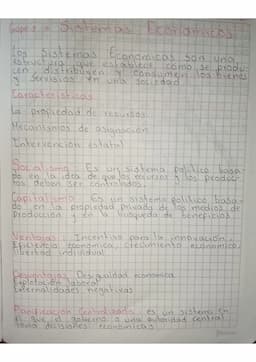 Sistemas Económicos
los Sistemas Económicos son una
estructura que establece cómo se produ-
cen, distribuyen y consumen los bienes
y servicios en una sociedad.
Características
La propiedad de recursos
Mecanismos de asignación
Intervención estatal
Socialismo: Es un sistema político basa-
do en la idea de que los recursos y los produc-
tos deben ser controlados.
Capitalismo: Es un sistema político basa-
do en la propiedad privada de los medios de
producción y en la búsqueda de beneficios.
Ventajas: Incentivo para la innovación,
Eficiencia económica, crecimiento económico,
libertad individual
Desventajas: Desigualdad económica
Explotación laboral
Externalidades negativas
Planificación Centralizada: es un sistema en
el que el gobierno o una autoridad central
toma decisiones económicas